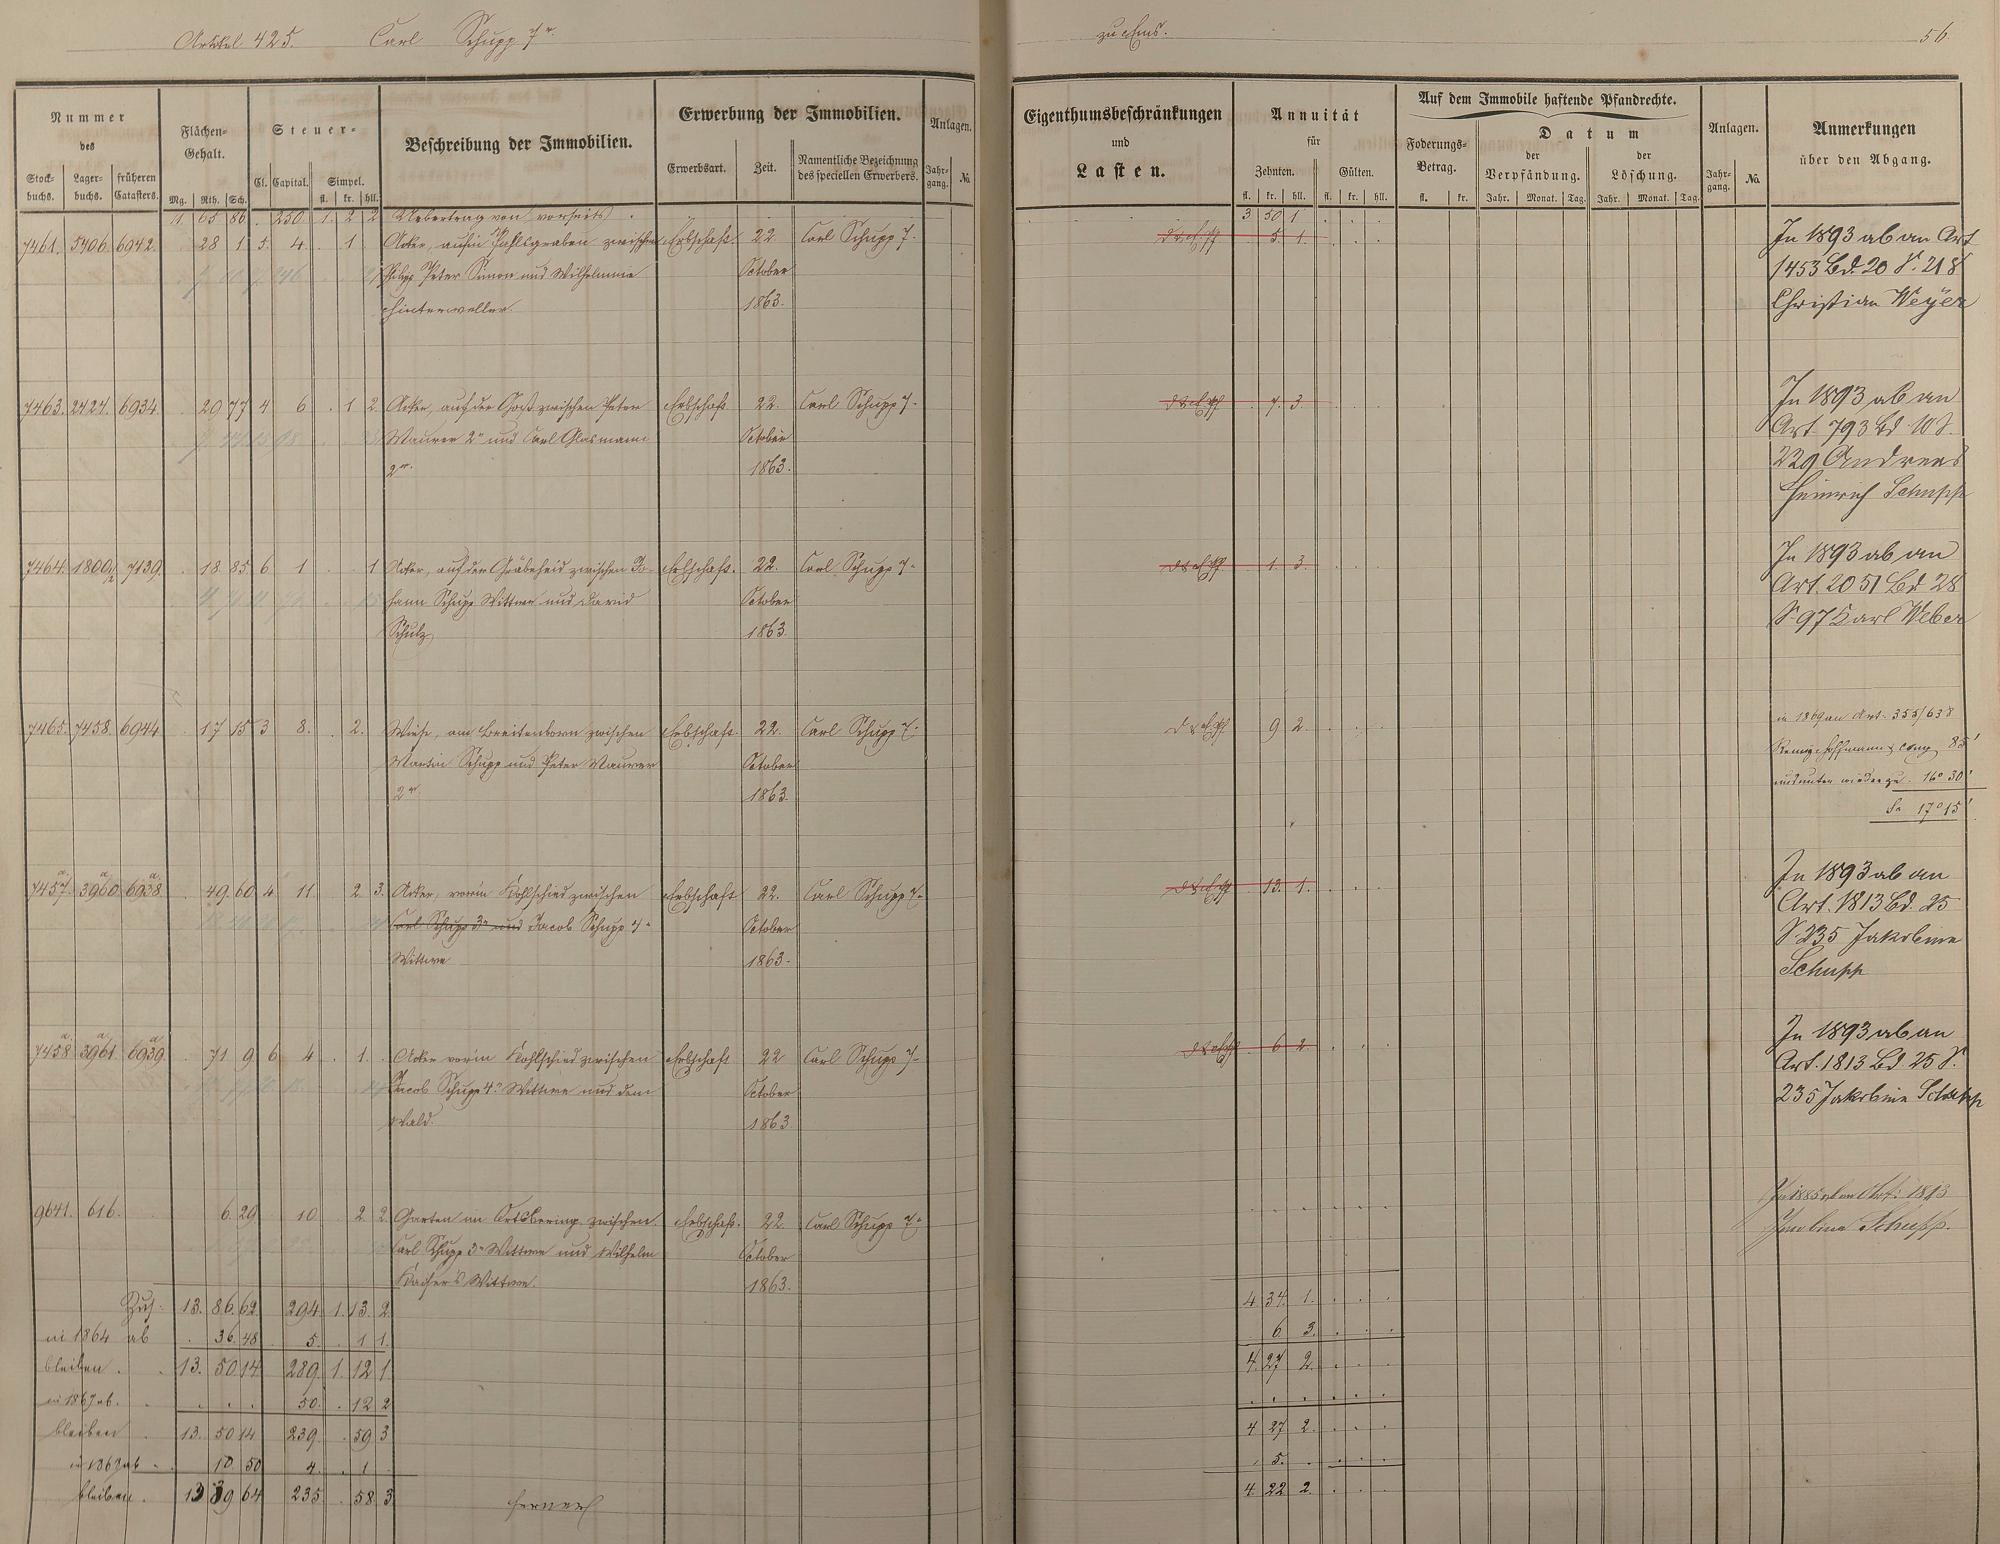 Artikel 425. Carl Schupp 7r
zu Ems. 56
Nummer
des
Stock-
buchs.
Lager-
buchs.
früheren
Catasters.
Flächen-
Gehalt.
Mg. Rth. Sch.
Steuer-
Cl. Capital. Simpel.
fl. kr. hll.
Beschreibung der Immobilien.
Erwerbung der Immobilien.
Erwerbsart. Zeit.
Namentliche Bezeichnung
des speciellen Erwerbers.
Anlagen.
Jahr-
gang. No.
Eigenthumsbeschränkungen
und
Lasten.
Annuität
für
Zehnten. Gülten.
fl. kr. hll. fl. kr. hll.
Auf dem Immobile haftende Pfandrechte.
Foderungs-
Betrag.
fl. kr.
Datum
der
Verpfändung.
der
Löschung.
Jahr. Monat. Tag. Jahr. Monat. Tag.
Anlagen.
Jahr-
gang. No.
Anmerkungen
über den Abgang.
11 65 86 . 250 1. 2 2 Uebertrag von vorseits 3 50 1
7461. 5406. 6942. 28 1 5. 4. . 1 Acker, auf'm Pfahlgraben zwischen Erbschaft. 22. Carl Schupp 7r 5. 1. In 1893 ab an Art
Philipp Peter Simon und Wilhelmine October 1453 Bd. 20 S. 218
Hinterweller. 1863. Christian Weyer
7463. 2427. 6934. 20 77 4 6 . 1 2. Acker, auf der Horst zwischen Peter Erbschaft 22. Carl Schupp 7r 7. 3. In 1893 ab an
Maurer 2r und Carl Glasmann October Art. 793 Bd. 10 S.
2r. 1863. 229 Andreas
Heinrich Schupp
7464. 1809 1/2 7139. 18 85 6 1 . . 1 Acker, auf der Gräbeheid zwischen Jo- Erbschaft. 22. Carl Schupp 7r 1. 3. In 1893 ab an
hann Schupp Wittwe und David October Art. 2051 Bd. 28
Schulz 1863. S. 97 Karl Weber
7465. 7458. 6944 17 15 3 8. . 2. Wiese, am Breitenborn zwischen Erbschaft. 22. Carl Schupp 7r 9 2. in 1869 an Art. 355/638
Martin Schupp und Peter Maurer October Remy Hoffmann & Comp 85'
2r. 1863. und unten wieder zu. 16° 30'
Sa 17° 15'
7457.a 3960.a 6938.a 49. 60 4. 11. 2 3. Acker, vorm Kohlschied zwischen Erbschaft 22. Carl Schupp 7r 13. 1. In 1893 ab an
Carl Schupp 3r und Jacob Schupp 4r October Art. 1813 Bd. 25
Wittwe 1863. S. 235 Jakobine
Schupp
7458.a 3961.a 6939.a 71 9 6 4 . 1. Acker vorm Kohlschied zwischen Erbschaft 22 Carl Schupp 7r 6 2. In 1893 ab an
Jacob Schupp 4r Wittwe und dem October Art. 1813 Bd. 25 S.
Wald. 1863 235 Jakobine Schupp
9641. 616. 6. 29 10 . 2 2. Garten im Ortsbering zwischen Erbschaft. 22. Carl Schupp 7r In 1885 ab an Art. 1813
Carl Schupp 3r Wittwe und Wilhelm October Jacobine Schupp.
Kaiser's Wittwe. 1863.
Zus. 13. 86. 62. 294. 1. 13. 2. 4 34. 1.
in 1864 ab . 36. 48 5. . 1 1. 6 3.
bleiben . 13. 50 14 289. 1. 12 1. 4. 27 2.
in 1867 ab. 50. . 12 2
bleiben 13. 50 14. 239. . 59 3 4 27 2.
in 1869 ab 10. 50 4. . 1 . 5.
bleiben . 13 39 64 235. . 58. 3. ferner 4. 22 2.